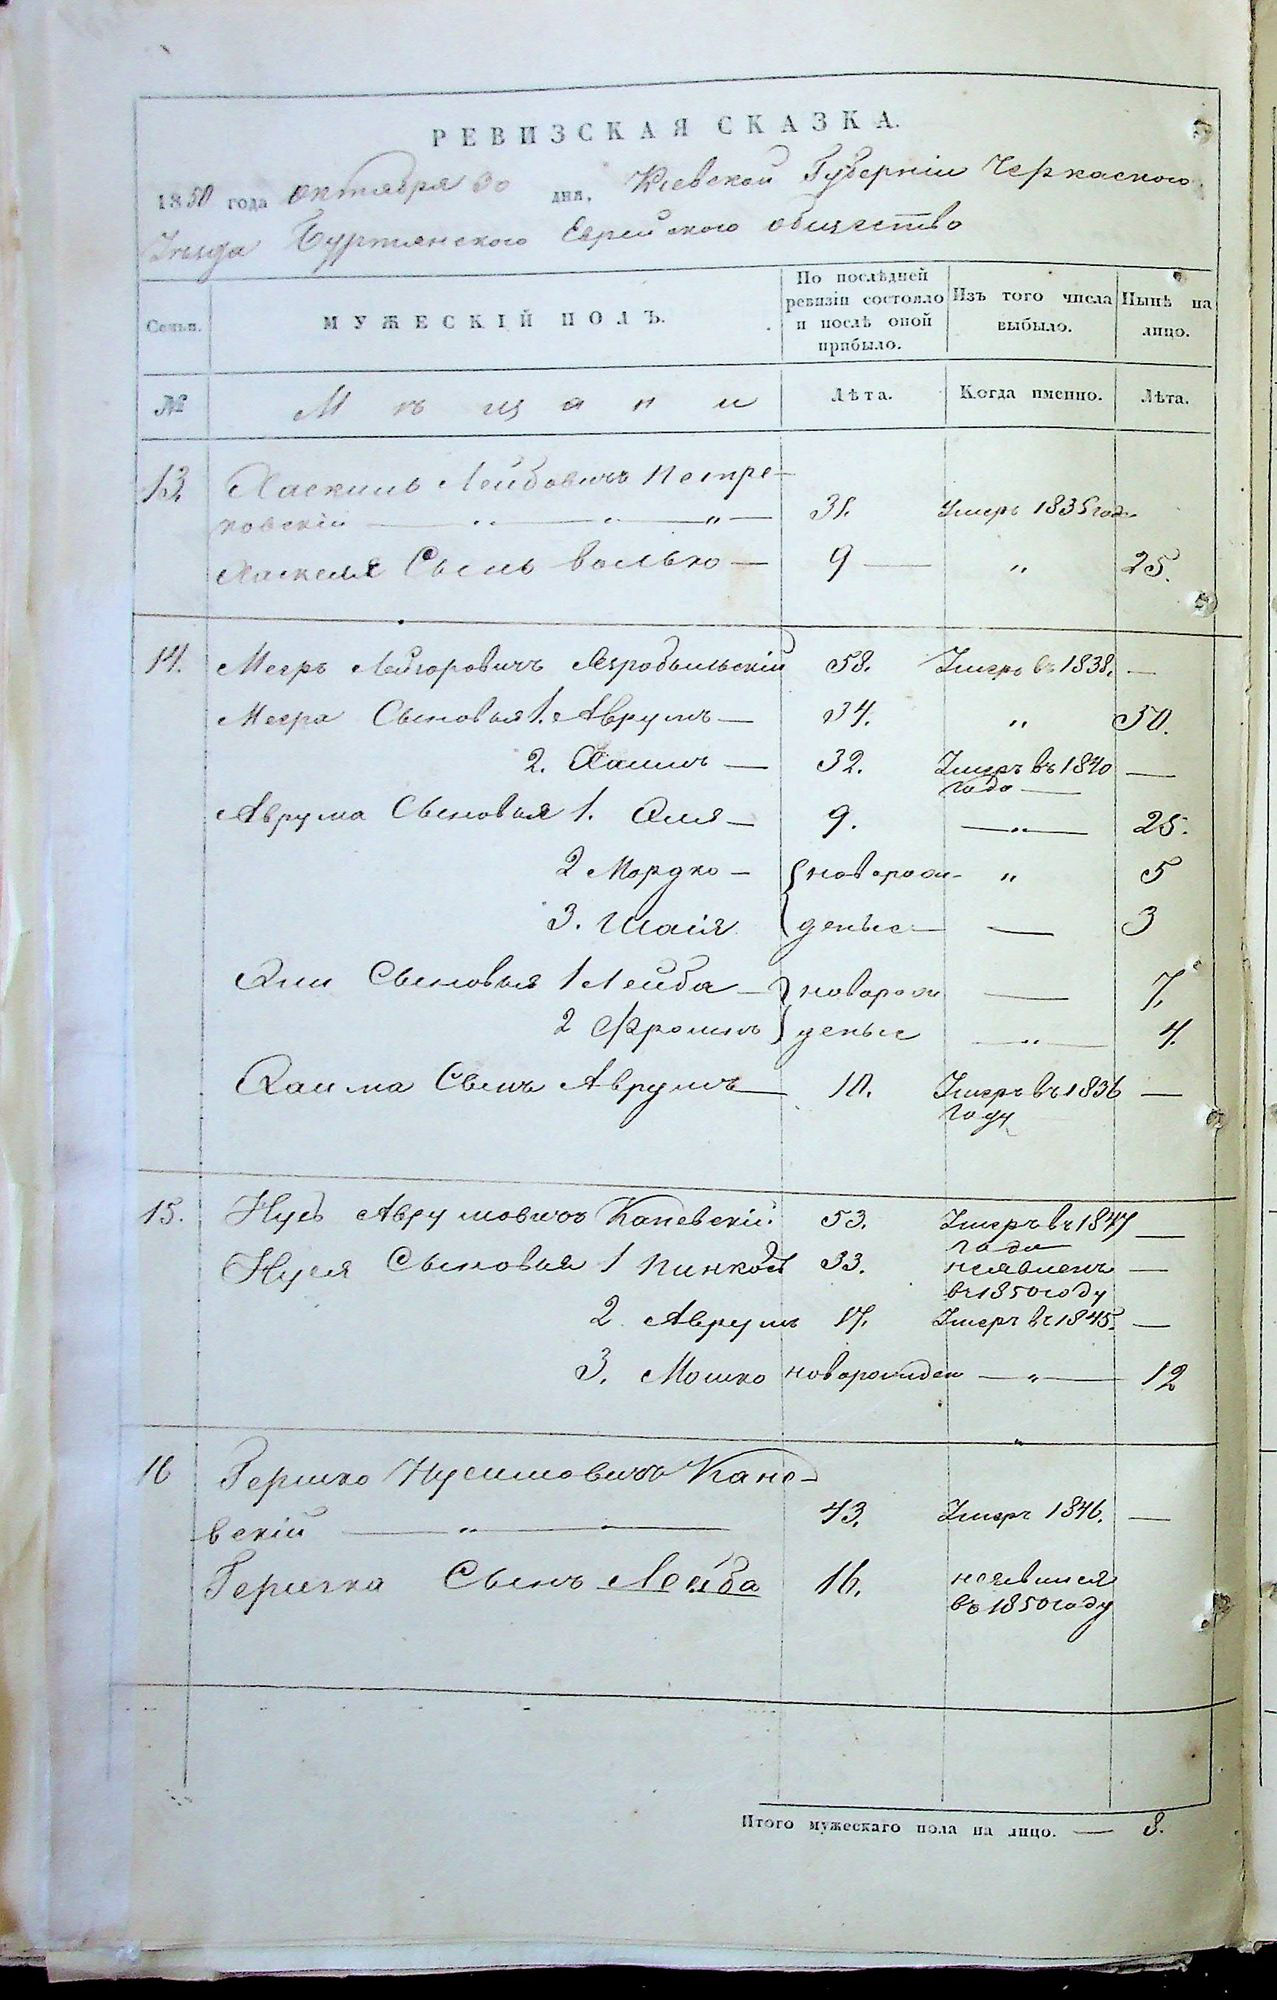 РЕВИЗСКАЯ СКАЗКА.
1850 года октября 30 дня, Кіевской Губерніи Черкаского
Уѣзда Буртянского Еврейского общество
Семьи. МУЖЕСКІЙ ПОЛЪ. По послѣдней ревизіи состояло и послѣ оной прибыло. Изъ того числа выбыло. Нынѣ на лицо.
№ Мѣщани Лѣта. Когда именно. Лѣта.
13. Хаскиль Лейбовичъ Петре-
ковскій — „ — „ — „ — 31. Умеръ 1835 год
Хаскеля Сынъ Волько — 9 — „ 25.
14. Мееръ 58. Умеръ въ 1838. —
Меера Сыновья 1. Аврумъ — 34. „ 50.
2. Хаимъ — 32. Умеръ въ 1840 —
года —
Аврума Сыновья 1. — 9. — „ — 25.
2 Мордко — новорож- „ 5
3. Шаія деные — — 3
Сыновья 1 Лейба — новорож — 7.
2 Фроимъ деные — „ — 4.
Хаима Сынъ Аврумъ — 10. Умеръ въ 1836 —
году
15. Нусь Аврумовичъ Каневскій. 53. Умеръ въ 1847 —
года
Нуся Сыновья 1 Пинкас 33. неявленъ —
въ 1850 году
2. Аврумъ 17. Умеръ въ 1845. —
3. Мошко новорожден — „ — 12
16 Гершко Нусимовичъ Кане-
вскій — „ — 43. Умеръ 1846. —
Гершка Сынъ Лейба 16. неявился
въ 1850 году
Итого мужескаго пола на лицо. — 8.